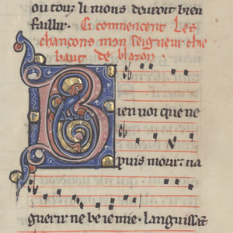 ou touz li mons devroit bien
faillir.
Ci commencent Les
chançons mon seigneur thie
baut de blazon
Bien voi que ne
puis mour na
guerir ne be ie mie. languissāt